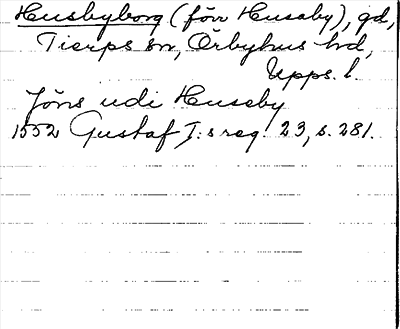 Husbyborg (förr Husaby), gd,
Tierps sn, Örbyhus hd,
Upps. l.
Jöns udi Huseby
1552 Gustaf I:s reg. 23, s. 281.